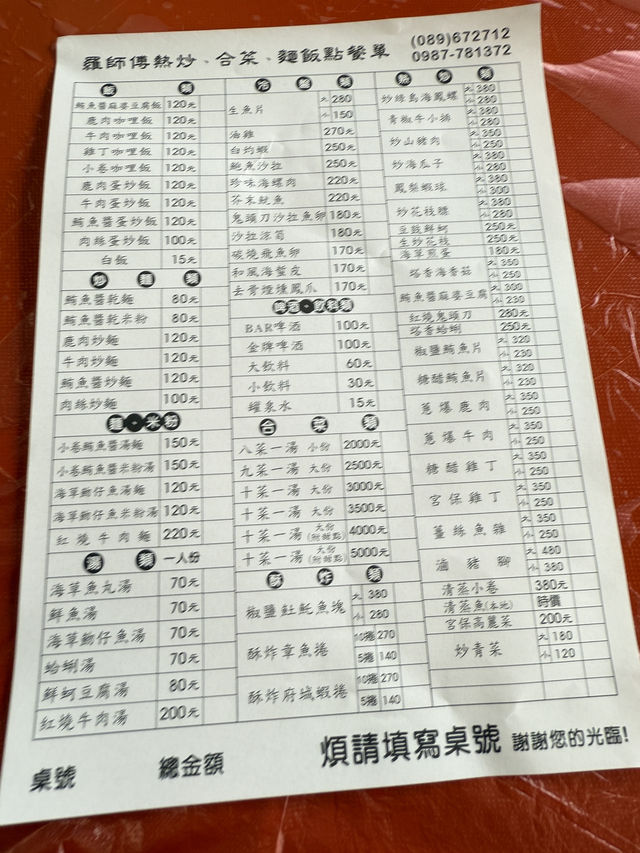 羅師傅熱炒、合菜、麵飯點餐單
(089)672712
0987-781372
飯 類
鮪魚醬麻婆豆腐飯 120元
鹿肉咖哩飯 120元
牛肉咖哩飯 120元
雞丁咖哩飯 120元
小卷咖哩飯 120元
鹿肉蛋炒飯 120元
牛肉蛋炒飯 120元
鮪魚醬蛋炒飯 120元
肉絲蛋炒飯 100元
白飯 15元
炒 麵 類
鮪魚醬乾麵 80元
鮪魚醬乾米粉 80元
鹿肉炒麵 120元
牛肉炒麵 120元
鮪魚醬炒麵 120元
肉絲炒麵 100元
麵、米粉
小卷鮪魚醬湯麵 150元
小卷鮪魚醬米粉湯 150元
海草魩仔魚湯麵 120元
海草魩仔魚米粉湯 120元
紅燒牛肉麵 220元
湯 類 一人份
海草魚丸湯 70元
鮮魚湯 70元
海草魩仔魚湯 70元
蛤蜊湯 70元
鮮蚵豆腐湯 80元
紅燒牛肉湯 200元
冷 盤 類
生魚片 大 280
小 150
油雞 270元
白灼蝦 250元
鮑魚沙拉 250元
珍味海螺肉 220元
芥末魷魚 220元
鬼頭刀沙拉魚卵 180元
沙拉涼筍 180元
碳燒飛魚卵 170元
和風海蜇皮 170元
去骨煙燻鳳爪 170元
啤酒、飲料類
BAR啤酒 100元
金牌啤酒 100元
大飲料 60元
小飲料 30元
罐泉水 15元
合 菜 類
八菜一湯 小份 2000元
九菜一湯 大份 2500元
十菜一湯 大份 3000元
十菜一湯 大份 3500元
十菜一湯 大份(附甜點) 4000元
十菜一湯 大份(附甜點) 5000元
酥 炸 類
椒鹽魟魠魚塊 大 380
小 280
酥炸章魚捲 10捲 270
5捲 140
酥炸府城蝦捲 10捲 270
5捲 140
熱 炒 類
炒綠島海鳳螺 大 380
小 280
青椒牛小排 大 380
小 280
炒山豬肉 大 350
小 250
炒海瓜子 大 380
小 280
鳳梨蝦球 大 380
小 300
炒花枝 大 380
小 280
豆鼓鮮蚵 250元
生炒花枝 250元
海草煎蛋 180元
塔香海香菇 大 350
小 250
鮪魚醬麻婆豆腐 大 300
小 230
紅燒鬼頭刀 280元
塔香蛤蜊 250元
椒鹽鮪魚片 大 320
小 230
糖醋鮪魚片 大 320
小 230
蔥爆鹿肉 大 350
小 250
蔥爆牛肉 大 350
小 250
糖醋雞丁 大 350
小 250
宮保雞丁 大 350
小 250
薑絲魚雜 大 350
小 250
滷豬腳 大 480
小 380
清蒸小卷 380元
清蒸魚(本地) 時價
宮保高麗菜 200元
炒青菜 大 180
小 120
桌號 總金額 煩請填寫桌號 謝謝您的光臨!